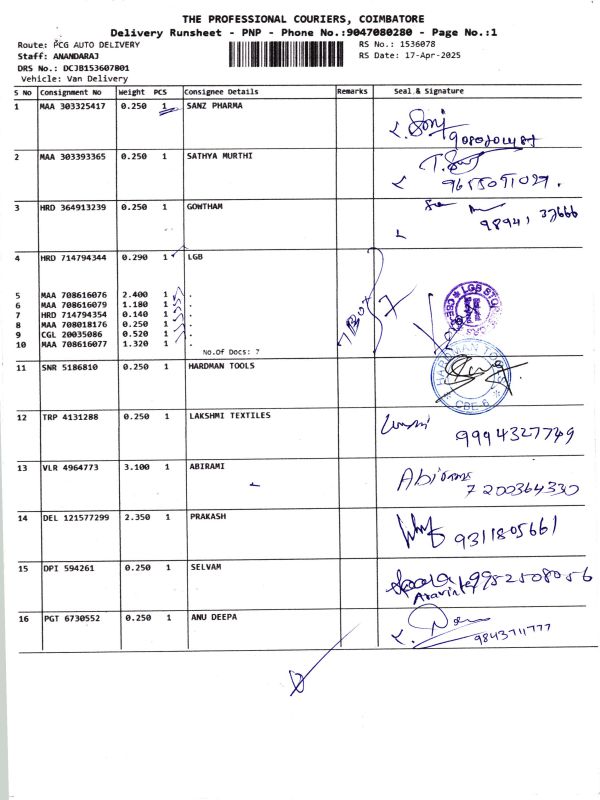 THE PROFESSIONAL COURIERS, COIMBATORE
Delivery Runsheet - PNP - Phone No.:9047080280 - Page No.:1
Route: PCG AUTO DELIVERY RS No.: 1536078
Staff: ANANDARAJ RS Date: 17-Apr-2025
DRS No.: DCJB153607801
Vehicle: Van Delivery
S No Consignment No Weight PCS Consignee Details Remarks Seal & Signature
1 MAA 303325417 0.250 1 SANZ PHARMA
2 MAA 303393365 0.250 1 SATHYA MURTHI
9655091029.
3 HRD 364913239 0.250 1 GOWTHAM
98941 37666
4 HRD 714794344 0.290 1 LGB
5 MAA 708616076 2.400 1 .
6 MAA 708616079 1.180 1 .
7 HRD 714794354 0.140 1 .
8 MAA 708018176 0.250 1 .
9 CGL 20035086 0.520 1 .
10 MAA 708616077 1.320 1 .
No.Of Docs: 7
7
11 SNR 5186810 0.250 1 HARDMAN TOOLS
HARDMAN TOOLS CBE-6
12 TRP 4131288 0.250 1 LAKSHMI TEXTILES
9994327749
13 VLR 4964773 3.100 1 ABIRAMI
7200364330
14 DEL 121577299 2.350 1 PRAKASH
9311805661
15 DPI 594261 0.250 1 SELVAM
9952508056
16 PGT 6730552 0.250 1 ANU DEEPA
9843711777